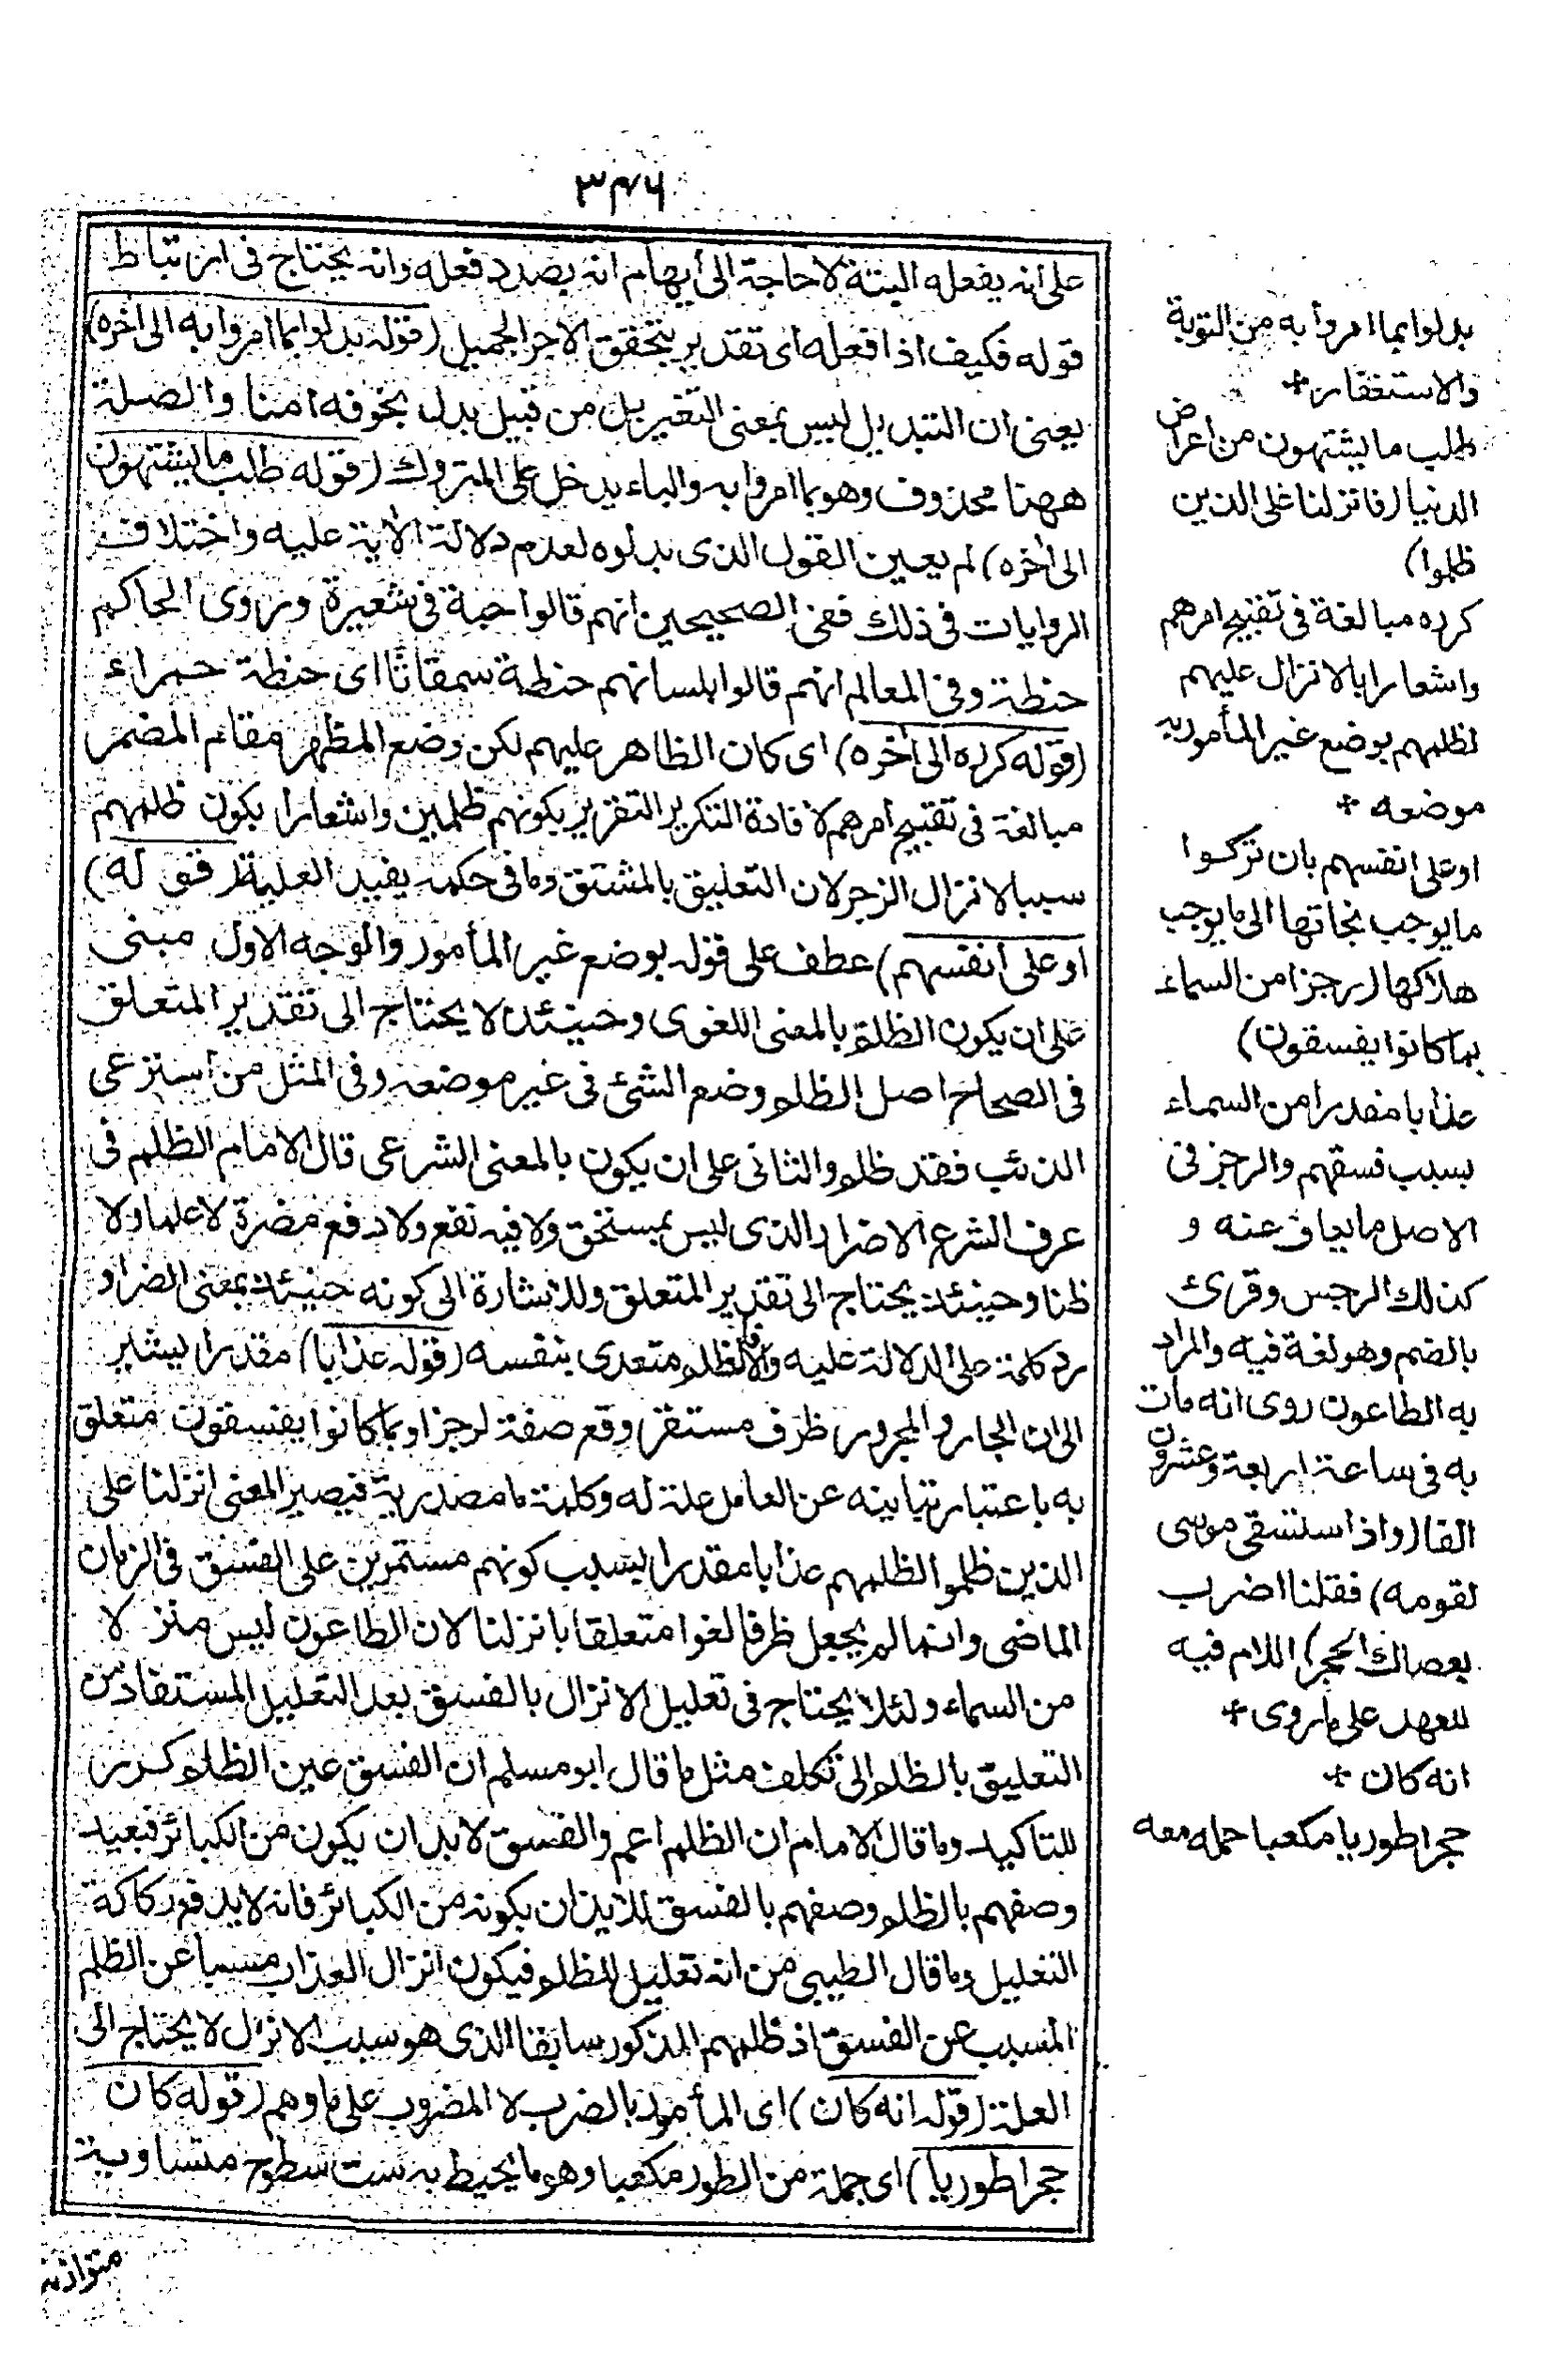 ٣٤٦
على أنه يفعله البتة لا حاجة الى أيهام انه بصدد فعله وانه يحتاج فى ارتباط
قوله فكيف اذا فعله اى تقدير يتحقق الاجر الجميل (قوله بدلوا بما امروا به الى اخره)
يعنى ان التبديل ليس بمعنى التغير بل من قبيل بدل بخوفه امنا والصلة
ههنا محذوف وهو بما امروا به والباء يدخل على المتروك (قوله طلب ما يشتهون
الى أخره) لم يعين القول الذى بدلوه لعدم دلالة الآية عليه واختلاف
الروايات فى ذلك ففى الصحيحين انهم قالوا حبة فى شعيرة وروى الحاكم
حنطة وفى المعالم انهم قالوا بلسانهم حنطة سمقاثا اى حنطة حمراء
(قوله كرره الى أخره) اى كان الظاهر عليهم لكن وضع المظهر مقام المضمر
مبالغة فى تقبيح أمرهم لافادة التكرير التقرير بكونهم ظلمين واشعارا بكون ظلمهم
سببا لانزال الزجر لان التعليق بالمشتق وما فى حكمه يفيد العلية (قوله)
او على أنفسهم) عطف على قوله بوضع غير المأمور والوجه الاول مبنى
على ان يكون الظلم بالمعنى اللغوى وحينئذ لا يحتاج الى تقدير المتعلق
فى الصحاح اصل الظلم وضع الشئ فى غير موضعه وفى المثل من استرعى
الذئب فقد ظلم والثانى على ان يكون بالمعنى الشرعى قال الامام الظلم فى
عرف الشرع الاضرار الذى ليس بمستحق ولا فيه نفع ولا دفع مضرة لا علما ولا
ظنا وحينئذ يحتاج الى تقدير المتعلق وللاشارة الى كونه حينئذ بمعنى الضرار
رد كلمة على للدلالة عليه والا فالظلم متعدى بنفسه (قوله عذابا) مقدرا يشير
الى ان الجار والمجرور ظرف مستقر وقع صفة لرجزا وبما كانوا يفسقون متعلق
به باعتبار نيابته عن العامل علة له وكلمة ما مصدرية فيصير المعنى انزلنا على
الذين ظلموا لظلمهم عذابا مقدرا بسبب كونهم مستمرين على الفسق فى الزمان
الماضى وانما لم يجعل ظرفا لغوا متعلقا بانزلنا لان الطاعون ليس منزلا
من السماء ولئلا يحتاج فى تعليل الانزال بالفسق بعد التعليل المستفاد من
التعليق بالظلم الى تكلف مثل ما قال ابو مسلم ان الفسق عين الظلم كرر
للتاكيد وما قال الامام ان الظلم اعم والفسق لا بد ان يكون من الكبائر فبعيد
وصفهم بالظلم وصفهم بالفسق للايذان بكونه من الكبائر فانه لا يدفع ركاكة
التعليل وما قال الطيبى من انه تعليل للظلم فيكون انزال العذاب مسببا عن الظلم
المسبب عن الفسق اذ ظلمهم المذكور سابقا الذى هو سبب الانزال لا يحتاج الى
العلة (قوله انه كان) اى المأمور بالضرب لا المضروب على ما وهم (قوله كان
حجرا طوريا) اى جملة من الطور مكعبا وهو ما يحيط به ست سطوح متساوية
متوازية
بدلوا بما امروا به من التوبة
والاستغفار+
طلب ما يشتهون من اعراض
الدنيا (فانزلنا على الذين
ظلموا)
كرره مبالغة فى تقبيح امرهم
واشعارا بالانزال عليهم
لظلمهم بوضع غير المأمور به
موضعه +
او على انفسهم بان تركوا
ما يوجب نجاتها الى ما يوجب
هلاكها (رجزا من السماء
بما كانوا يفسقون)
عذابا مقدرا من السماء
بسبب فسقهم والرجز فى
الاصل ما يعاف عنه و
كذلك الرجس وقرئ
بالضم وهو لغة فيه والمراد
به الطاعون روى انه مات
به فى ساعة اربعة وعشرون
الفا (واذا ستسقى موسى
لقومه) فقلنا اضرب
بعصاك الحجر) اللام فيه
للعهد على ما روى +
انه كان +
حجرا طوريا مكعبا حمله معه